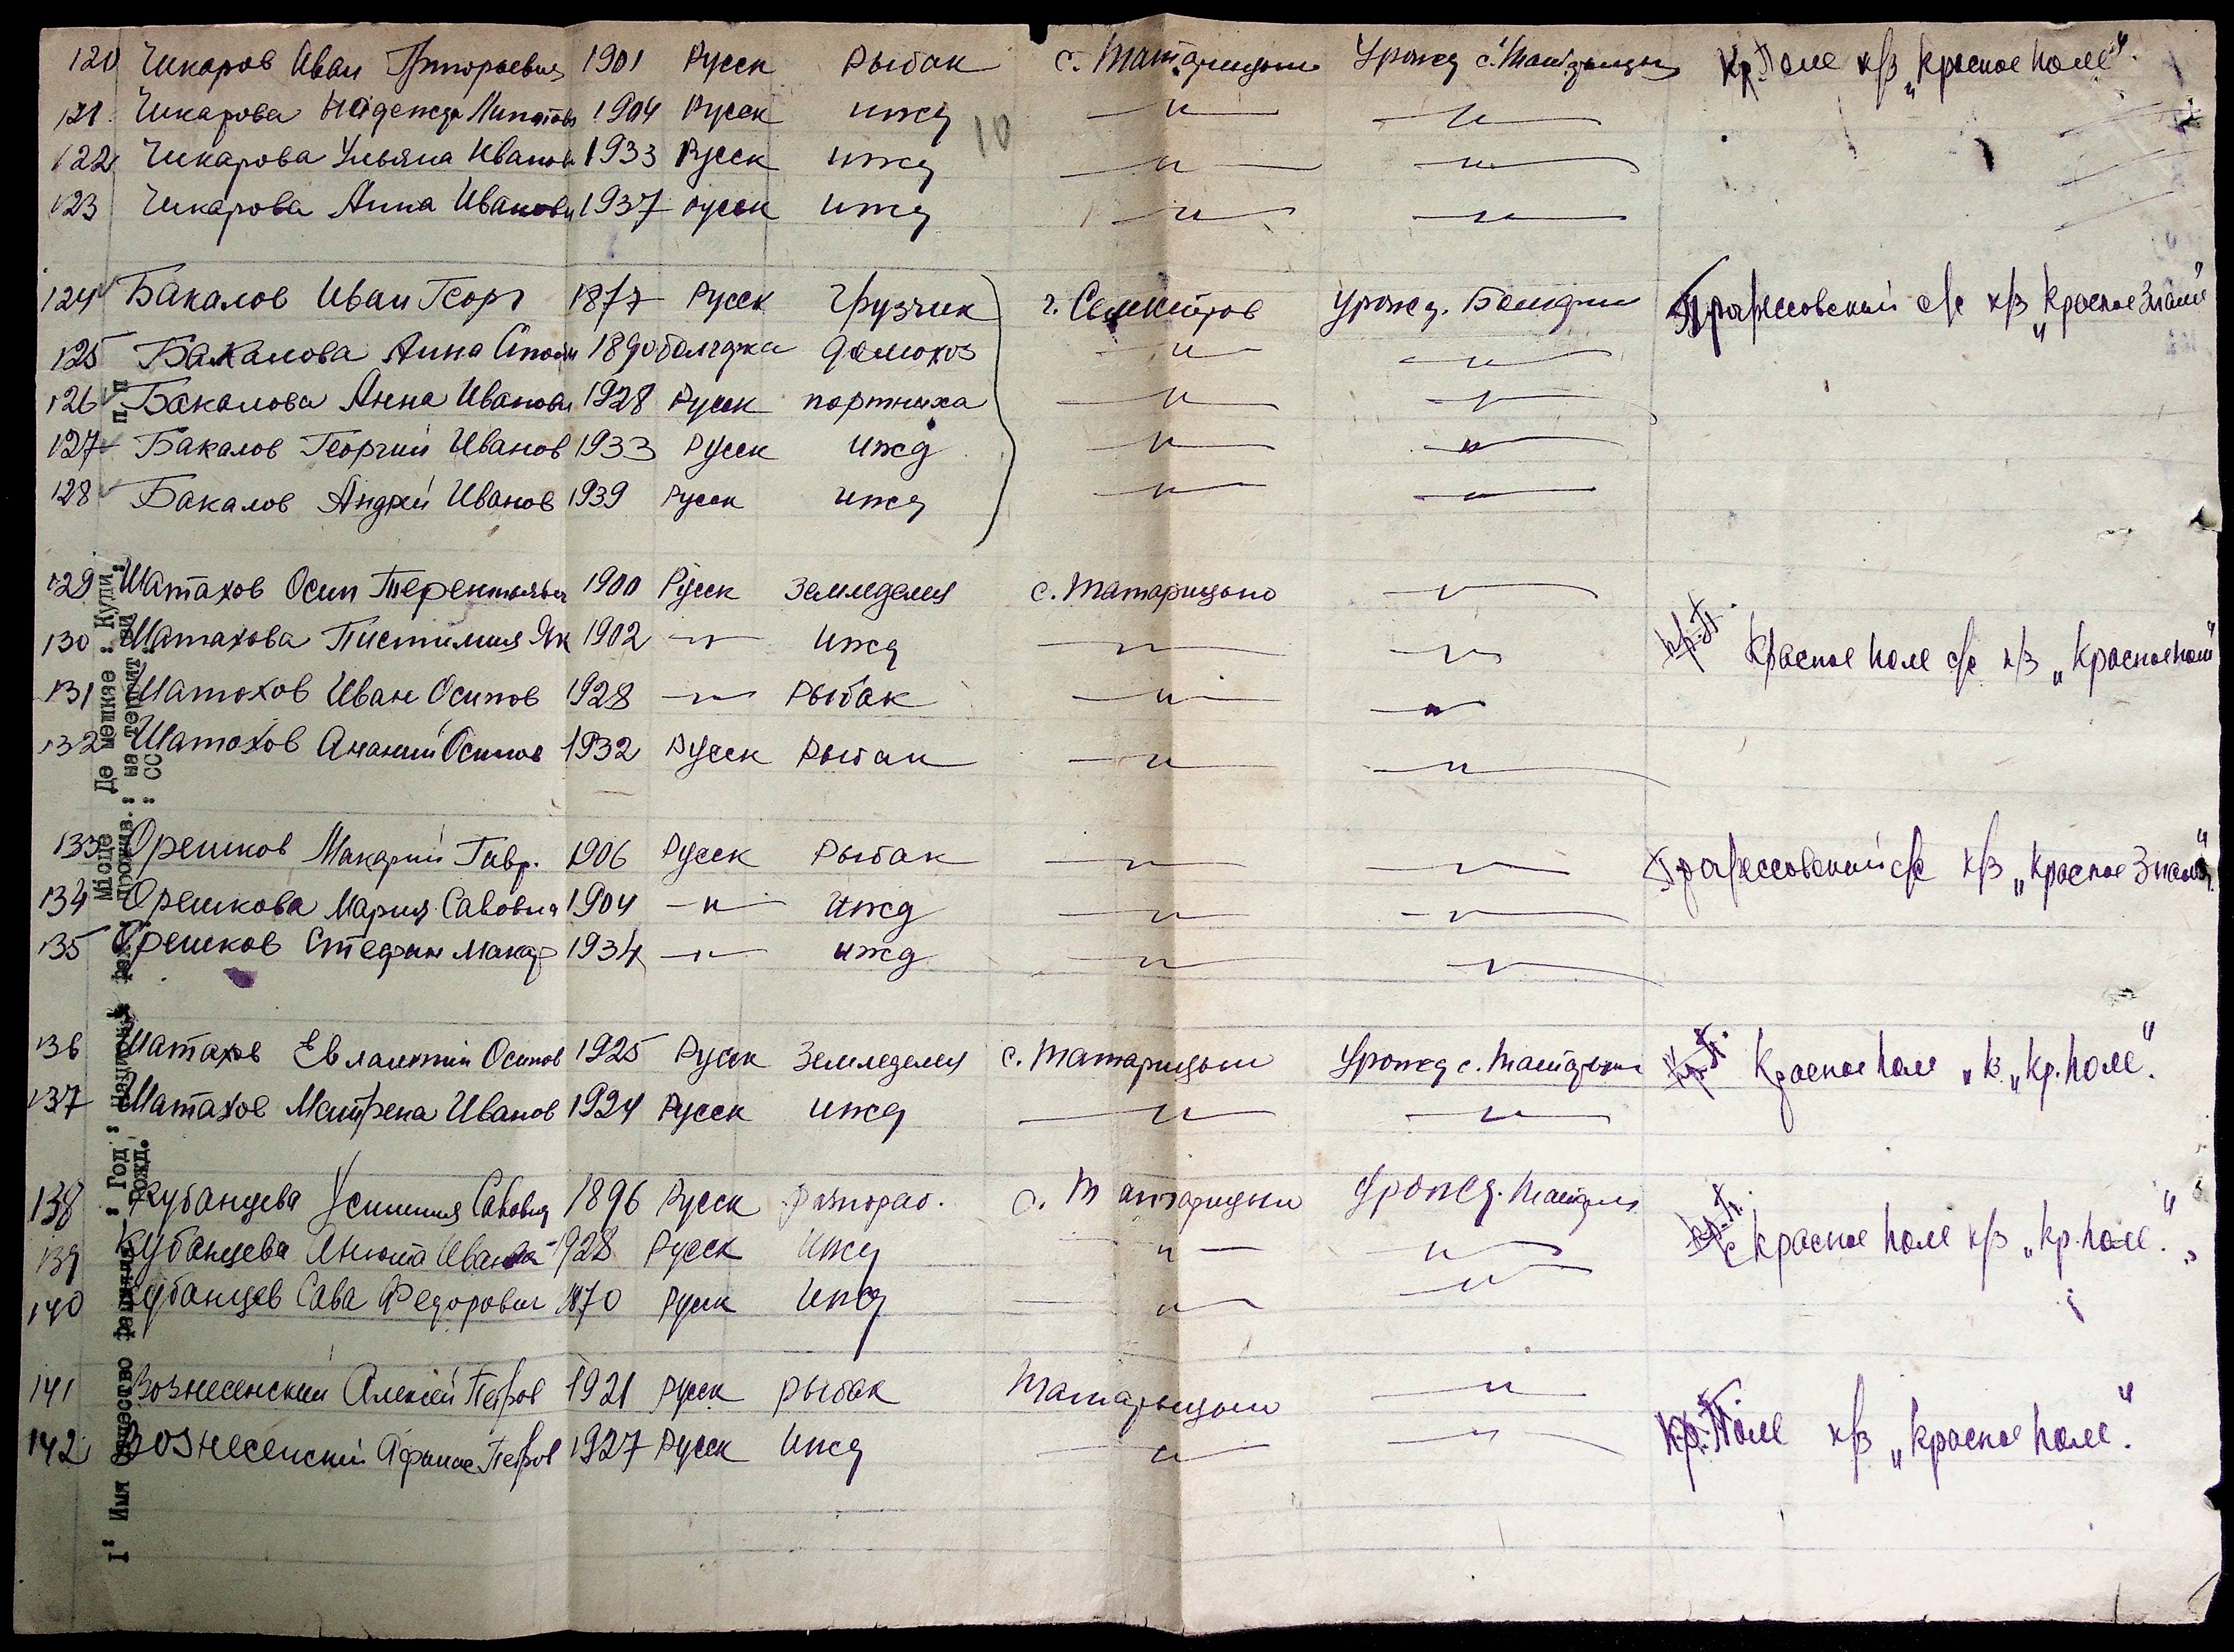 120 Чикаров Иван Григорьевич 1901 Русск Рыбак с. Татарицыи Урожд с. Татарицы Кр. Поле к/з „Красное поле".
121 Чикарова Надежда 1904 Русск ижд —"— —"—
10
122 Чикарова Ульяна Иванов 1933 Русск ижд —"— —"—
123 Чикарова Анна Ивановн 1937 русск ижд —"— —"—
124 Бакалов Иван Георг 1877 Русск Грузчик г. Урожд. с/с к/з „Красное Знамя"
125 Бакалова Анна 1890 болгарка домохоз —"— —"—
126 Бакалова Анна Ивановн 1928 Русск портниха —"— —"—
127 Бакалов Георгий Иванов 1933 Русск ижд —"— —"—
128 Бакалов Андрей Иванов 1939 Русск ижд —"— —"—
129 Шатахов Осип Терентьевич 1900 Русск Земледелец с. Татарицыно —"—
130 Шатахова Пистимия Як 1902 —"— ижд —"— —"— кр. П. Красное поле с/с к/з „Красное поле"
131 Шатохов Иван Осипов 1928 —"— Рыбак —"— —"—
132 Шатохов Ананий Осипов 1932 Русск Рыбак —"— —"—
133 Орешков Макарий Гавр. 1906 Русск Рыбак —"— —"— с/с к/з „Красное Знамя"
134 Орешкова Мария Савовна 1904 —"— ижд —"— —"—
135 Орешков Стефан Макар 1934 —"— ижд —"— —"—
136 Шатахов Евлантий Осипов 1925 Русск Земледелец с. Татарицыи Урожд с. Татарицы кр. П. Красное поле к. „Кр. поле".
137 Шатахов Матрена Иванов 1924 Русск ижд —"— —"—
138 Кубанцева Савовна 1896 Русск разнораб. с. Татарицыи Урожд. кр. П.
139 Кубанцева Анюта Иванов 1928 Русск ижд —"— —"— с Красное поле к/з „Кр. поле".
140 Кубанцев Сава Федорович 1870 Русск ижд —"— —"—
141 Вознесенский Алексей Петров 1921 Русск рыбак Татарицыи —"—
142 Вознесенский Афанас Петров 1927 Русск ижд —"— —"— Кр. Поле к/з „Красное поле".
Имя Отчество фамилия : Год рожд. : Национ. : Місце прожив. : Де мешкає на терит. СС : Куди
п/п